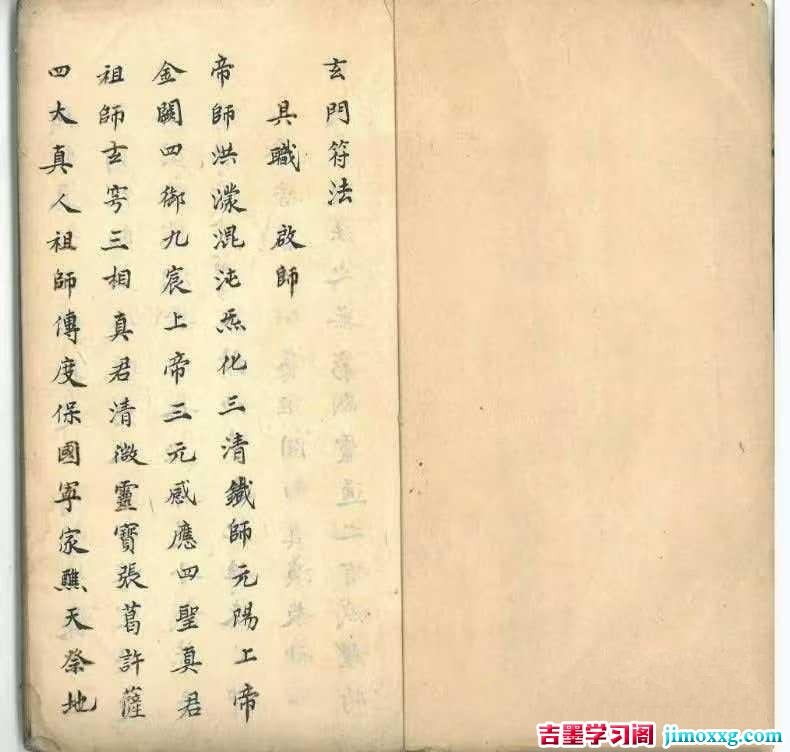 玄門符法
具職啟師
帝師洪濛混沌炁化三清鐵師元陽上帝
金闕四御九宸上帝三元感應四聖真君
祖師玄穹三相真君清微靈寶張葛許薩
四大真人祖師傳度保國寧家醮天祭地
吉墨学习阁 jimoxxg.com